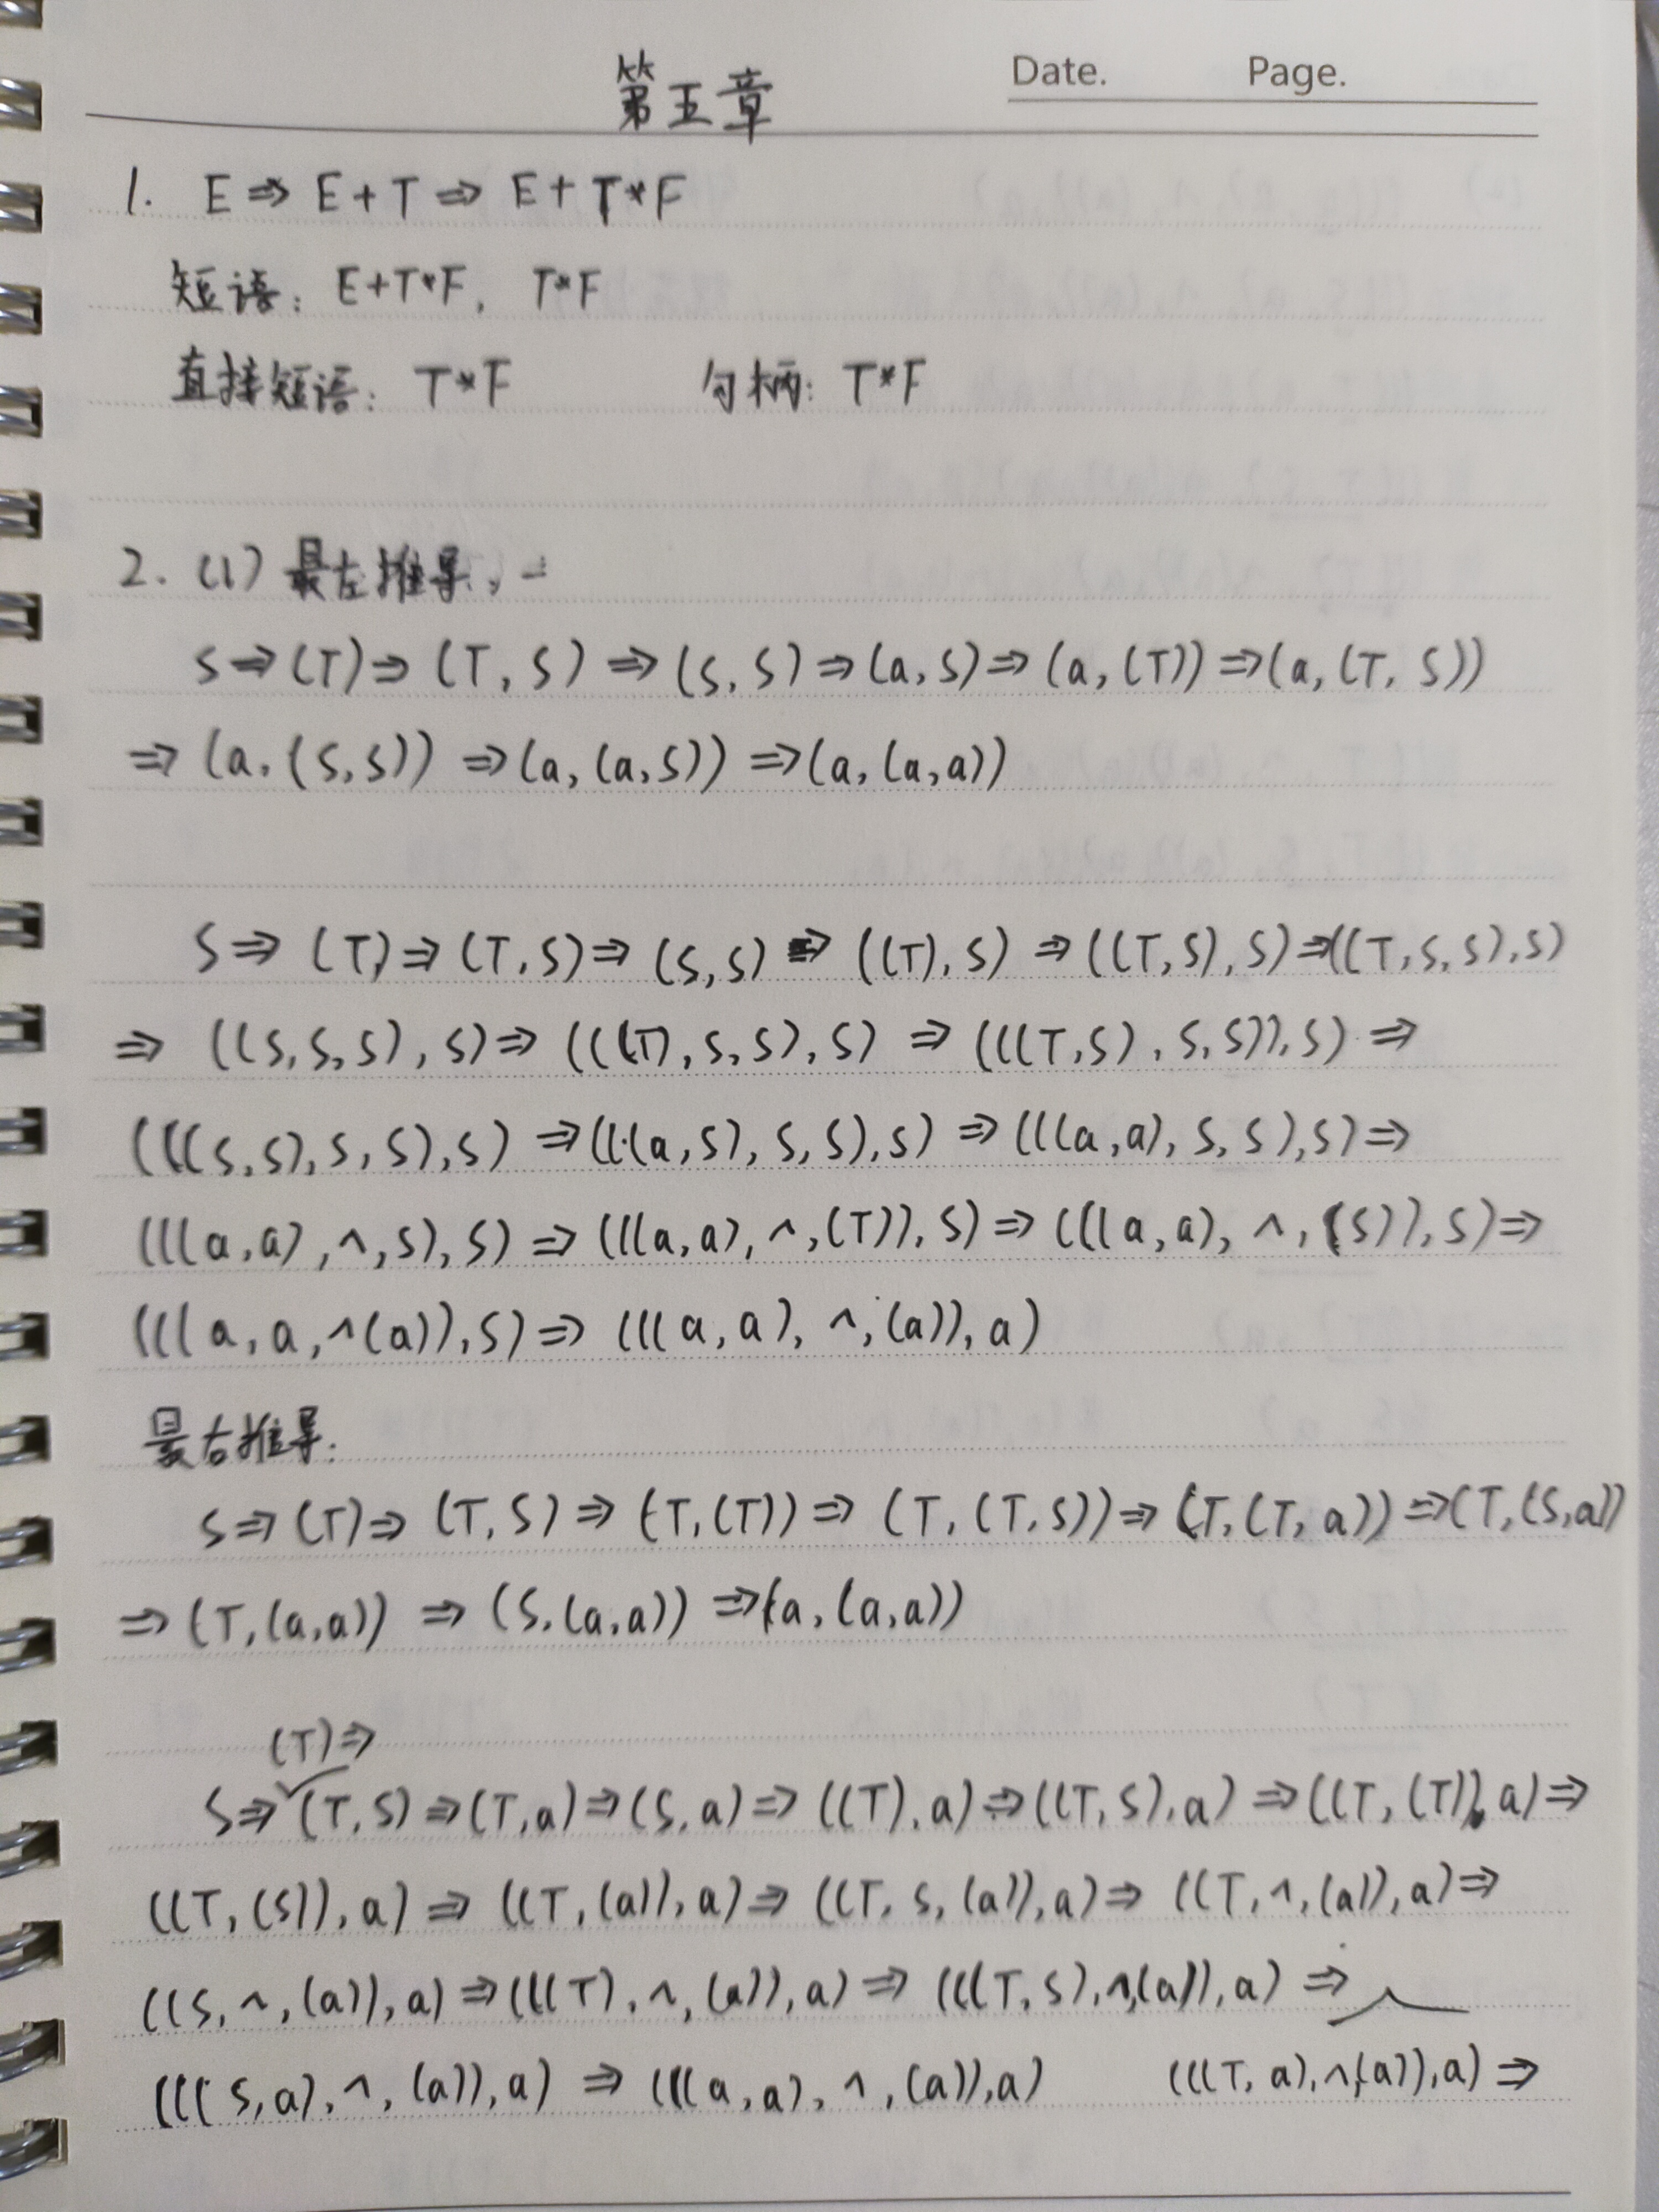 第五章
Date. Page.
1. E ⇒ E + T ⇒ E + T*F
短语: E+T*F, T*F
直接短语: T*F 句柄: T*F
2. (1) 最左推导,
S ⇒ (T) ⇒ (T, S) ⇒ (S, S) ⇒ (a, S) ⇒ (a, (T)) ⇒ (a, (T, S))
⇒ (a, (S, S)) ⇒ (a, (a, S)) ⇒ (a, (a, a))
S ⇒ (T) ⇒ (T, S) ⇒ (S, S) ⇒ ((T), S) ⇒ ((T, S), S) ⇒ ((T, S, S), S)
⇒ ((S, S, S), S) ⇒ (((T), S, S), S) ⇒ (((T, S), S, S)), S) ⇒
(((S, S), S, S), S) ⇒ (((a, S), S, S), S) ⇒ (((a, a), S, S), S) ⇒
(((a, a), ^, S), S) ⇒ (((a, a), ^, (T)), S) ⇒ (((a, a), ^, (S)), S) ⇒
(((a, a, ^(a)), S) ⇒ (((a, a), ^, (a)), a)
最右推导:
S ⇒ (T) ⇒ (T, S) ⇒ (T, (T)) ⇒ (T, (T, S)) ⇒ (T, (T, a)) ⇒ (T, (S, a))
⇒ (T, (a, a)) ⇒ (S, (a, a)) ⇒ (a, (a, a))
(T) ⇒
S ⇒ (T, S) ⇒ (T, a) ⇒ (S, a) ⇒ ((T), a) ⇒ ((T, S), a) ⇒ ((T, (T)), a) ⇒
((T, (S)), a) ⇒ ((T, (a)), a) ⇒ ((T, S, (a)), a) ⇒ ((T, ^, (a)), a) ⇒
((S, ^, (a)), a) ⇒ (((T), ^, (a)), a) ⇒ (((T, S), ^, (a)), a) ⇒
(((S, a), ^, (a)), a) ⇒ (((a, a), ^, (a)), a) (((T, a), ^, (a)), a) ⇒